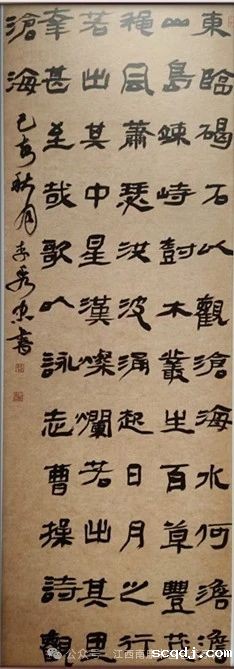 東臨碣石以觀滄海水何澹澹
山島竦峙尌木叢生百草豐茂
風蕭瑟洪波涌起日月之行
若出其中星漢燦爛若出其里
幸甚至哉歌以詠志曹操詩觀
滄海
己亥秋月李秀書
公众号 江西商
scgdj.com.cn